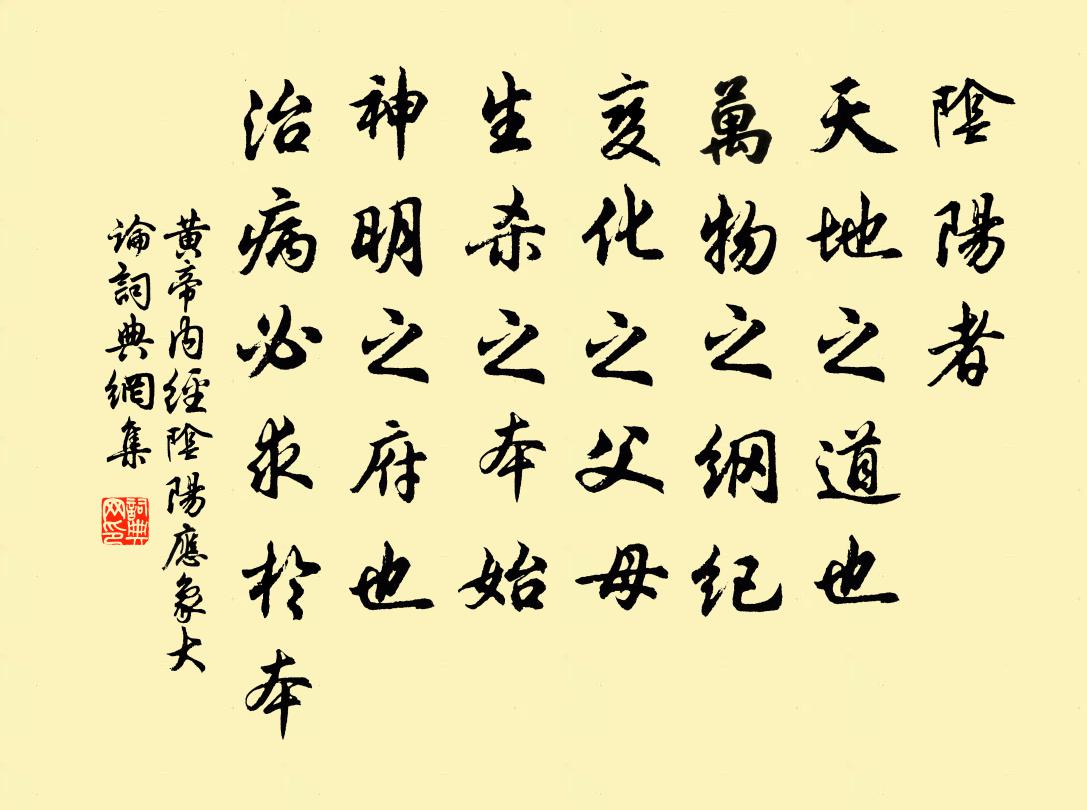 陰陽者
天地之道也
萬物之纲纪
变化之父母
生杀之本始
神明之府也
治病必求於本
黃帝内經陰陽應象大
論詞典網集
詞典
网印